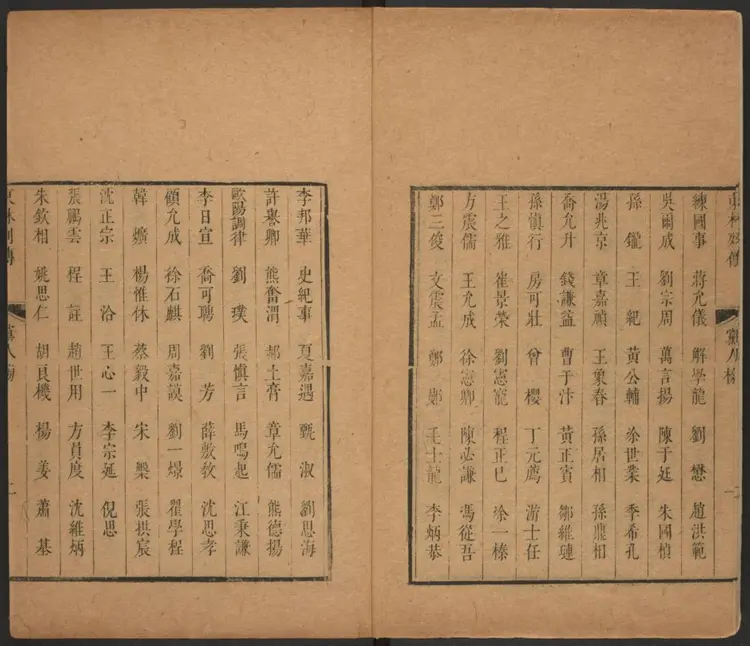 練國事 蔣允儀 解學龍 劉懋 趙洪範
吳爾成 劉宗周 萬言揚 陳于廷 朱國楨
孫鑨 王紀 黃公輔 涂世業 季希孔
湯兆京 章嘉禎 王象春 孫居相 孫鼎相
喬允升 錢謙益 曹于汴 黃正賓 鄒維璉
孫慎行 房可壯 曾櫻 丁元薦 游士任
王之雅 崔景榮 劉憲寵 程正巳 涂一榛
方震儒 王允成 徐憲卿 陳必謙 馮從吾
鄭三俊 文震孟 鄭鄤 王士龍 李炳恭
李邦華 史紀事 夏嘉遇 甄淑 劉思海
許譽卿 熊奮渭 郝土膏 章允儒 熊德揚
歐陽調律 劉璞 張慎言 馬鳴起 江秉謙
李日宣 喬可聘 劉芳 薛敷教 沈思孝
顧允成 徐石麒 周嘉謨 劉一燝 翟學程
韓爌 楊惟休 蔡毅中 宋槃 張拱宸
沈正宗 王洽 王心一 李宗延 倪思
張鵬雲 程註 趙世用 方員度 沈維炳
朱欽相 姚思仁 胡良機 楊姜 蕭基